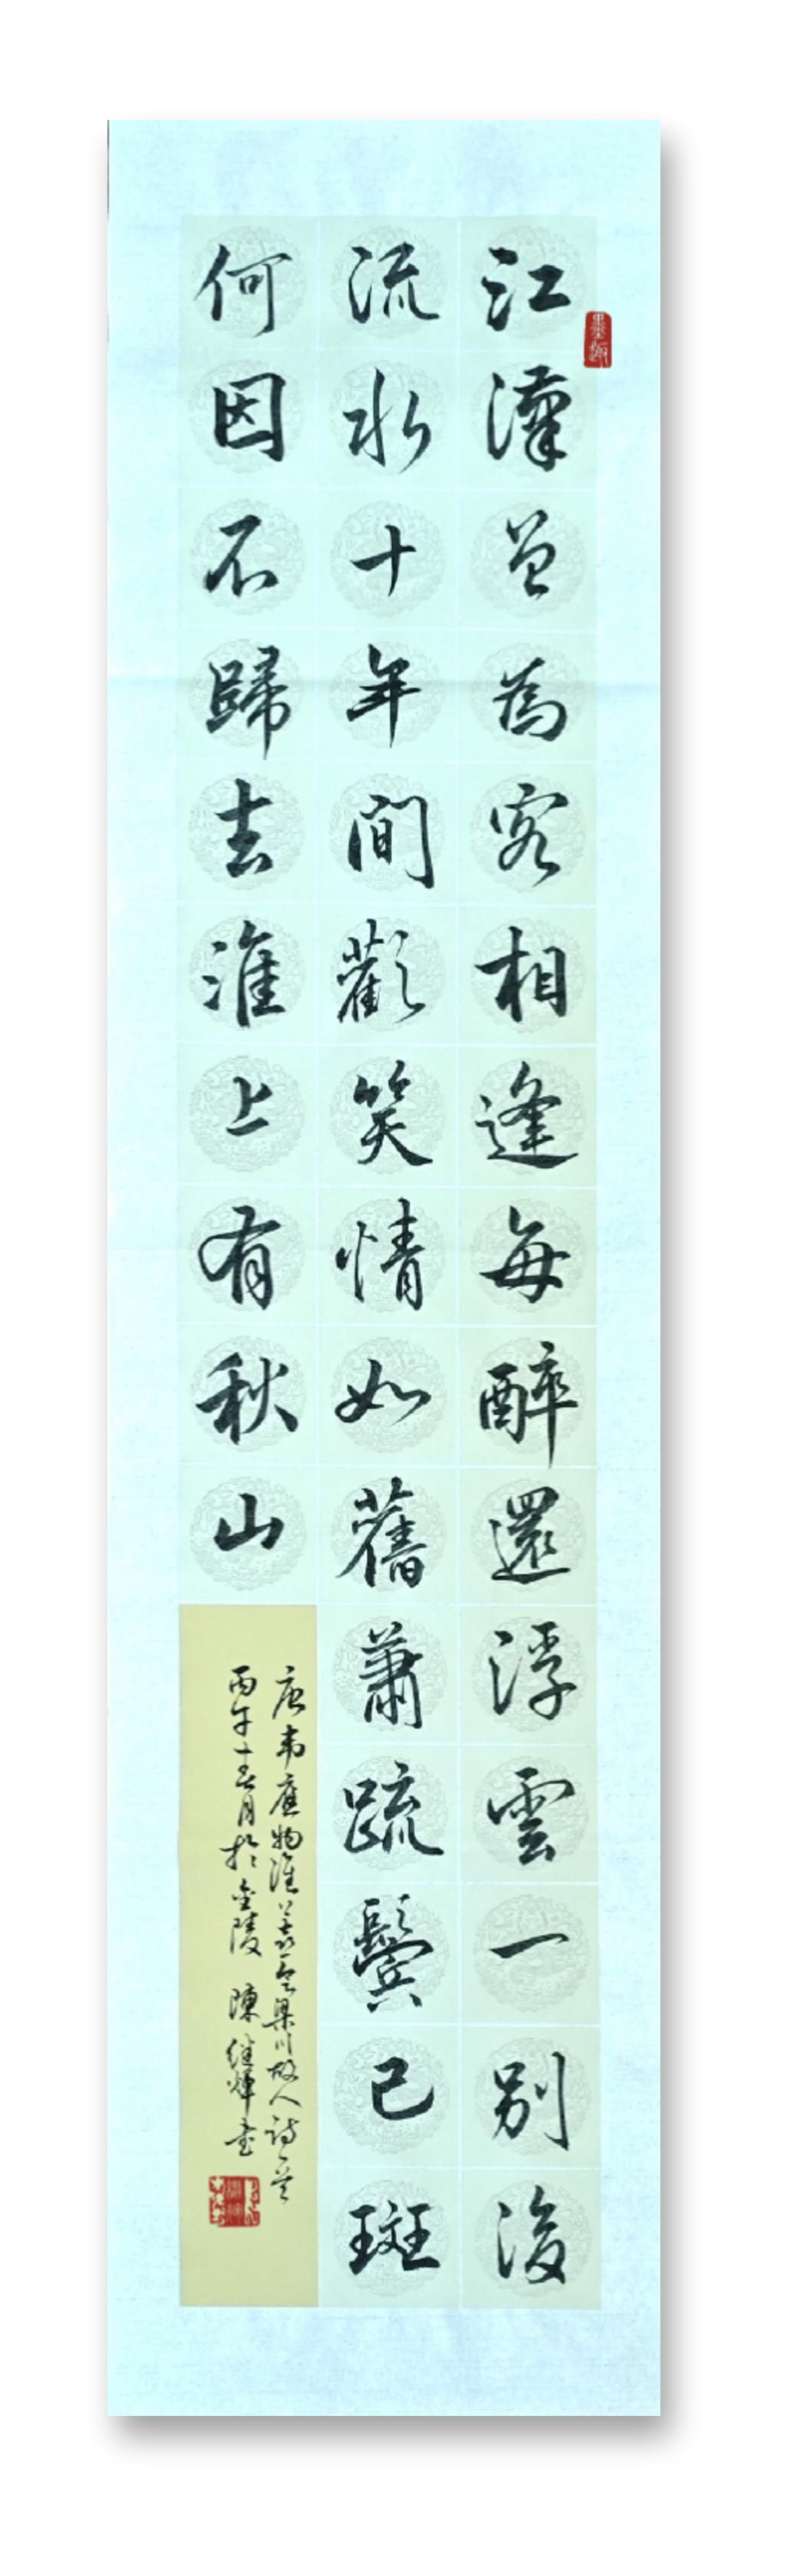 江漢曾為客相逢每醉還浮雲一別後
流水十年間歡笑情如舊蕭疏鬢已斑
何因不歸去淮上有秋山
唐韋應物淮上喜會梁川故人詩一首
丙午十二月於金陵 陳繼輝書
墨趣